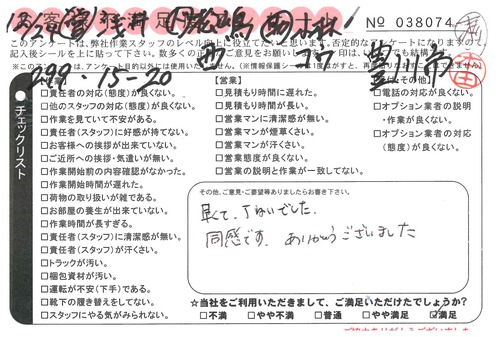 お客
足
Nº 038074
このアンケートは、弊社作業スタッフのレベル向上に役立てたいと思います。否定的なアンケートになりますので
記入後シールを上に貼って下さい。
(※このアンケートは、アンケート目的以外には使用いたしません。)
299-15-20
チェックリスト
□責任者の対応(態度)が良くない。
□他のスタッフの対応(態度)が良くない。
□作業を見ていて不安がある。
□責任者(スタッフ)に好感が持てない。
□お客様への挨拶が出来ていない。
□ご近所への挨拶・気遣いが無い。
□作業開始前の内容確認がなかった。
□作業開始時間が遅れた。
□荷物の取り扱いが雑である。
□お部屋の養生が出来ていない。
□作業時間が長すぎる。
□責任者(スタッフ)に清潔感が無い。
□責任者(スタッフ)が汗くさい。
□トラックが汚い。
□梱包資材が汚い。
□運転が不安(下手)である。
□靴下の履き替えをしてない。
□スタッフにやる気がみられない。
【営業】
□見積もり時間に遅れた。
□見積もり時間が長い。
□営業マンに清潔感が無い。
□営業マンが煙草くさい。
□営業マンが汗くさい。
□営業態度が良くない。
□営業の説明と作業が一致してない。
その他】
□電話の対応が良くない。
□オプション業者の説明
・作業が良くない。
□オプション業者の対応
(態度)が良くない。
その他、ご意見・ご要望等ありましたらお書き下さい。
早くて、丁ねいでした。
同感です。ありがとうございました
☆当社をご利用いただきまして、ご満足いただけたでしょうか?
□不満 □やや不満 □普通 □やや満足 ☑満足
ご協力ありがとうございました